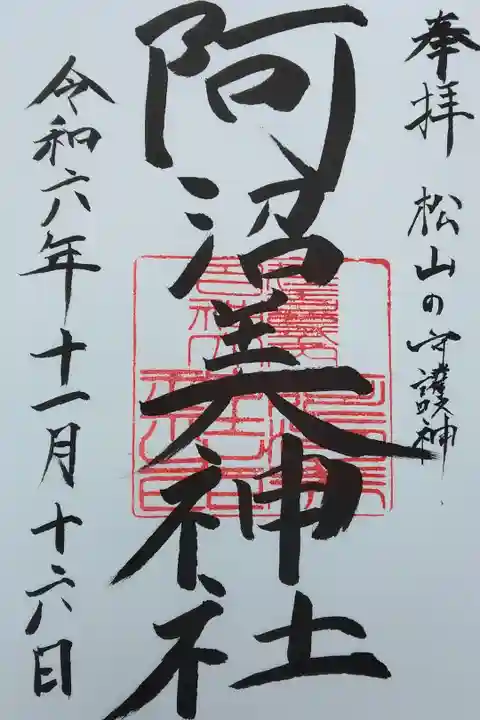 奉拝 松山の守護神
阿沼美神社
令和六年十一月十六日